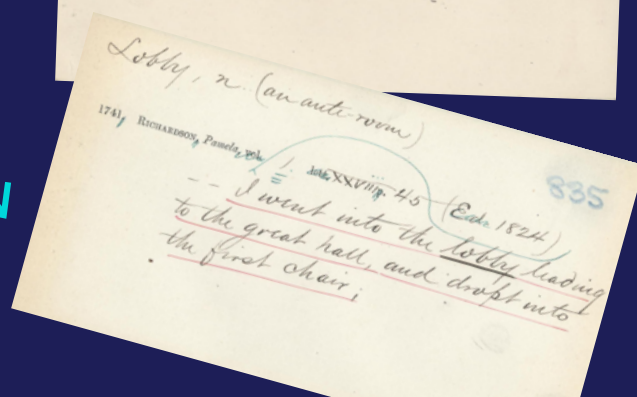 Lobby, n. (an ante-room)
835
1741, RICHARDSON, Pamela, vol. I. 45 (Edn. 1824)
-- I went into the lobby leading
to the great hall, and dropt into
the first chair;
N